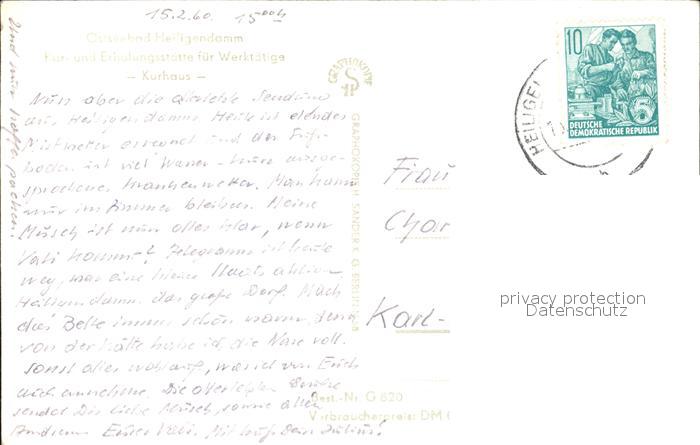 15.2.60. 15 00 h
Ostseebad Heiligendamm
Kur- und Erholungsstätte für Werktätige
– Kurhaus –
Nun aber die allerletzte Sendung
aus Heiligendamm. Heute ist elendes
Mistwetter und der
boden ist viel Wasser
Krankenwetter. Man kann
nur im Zimmer bleiben. Meine
Musch ist nun alles klar, wenn
Vati kommt? Telegramm ist heute
weg, war eine kleine Staatsaktion
Heiligendamm das große Dorf. Mach
das Bette immer schön warm, denn
von der Kälte habe ich die Nase voll.
Sonst alles wohlauf, was ich von Euch
auch annehme. Die allerletzten Grüße
sendet Dir liebe Musch, sowie allen
Anderen Euer Vati.
Und nun packen!
GRAPHOKOPIE
GRAPHOKOPIE H. SANDER K. G. BERLIN
10
5
DEUTSCHE
DEMOKRATISCHE REPUBLIK
HEILIGE
Frau
Char
Karl-
privacy protection
Datenschutz
Best.-Nr. G 820
Verbraucherpreis: DM